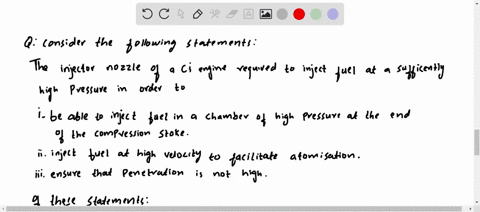 Q: consider the following statements:
The injector nozzle of a Ci engine required to inject fuel at a sufficently
high Pressure in order to
i- be able to inject fuel in a chamber of high pressure at the end
of the compression stoke.
ii. inject fuel at high velocity to facilitate atomisation.
iii. ensure that Penetration is not high.
of these statements: